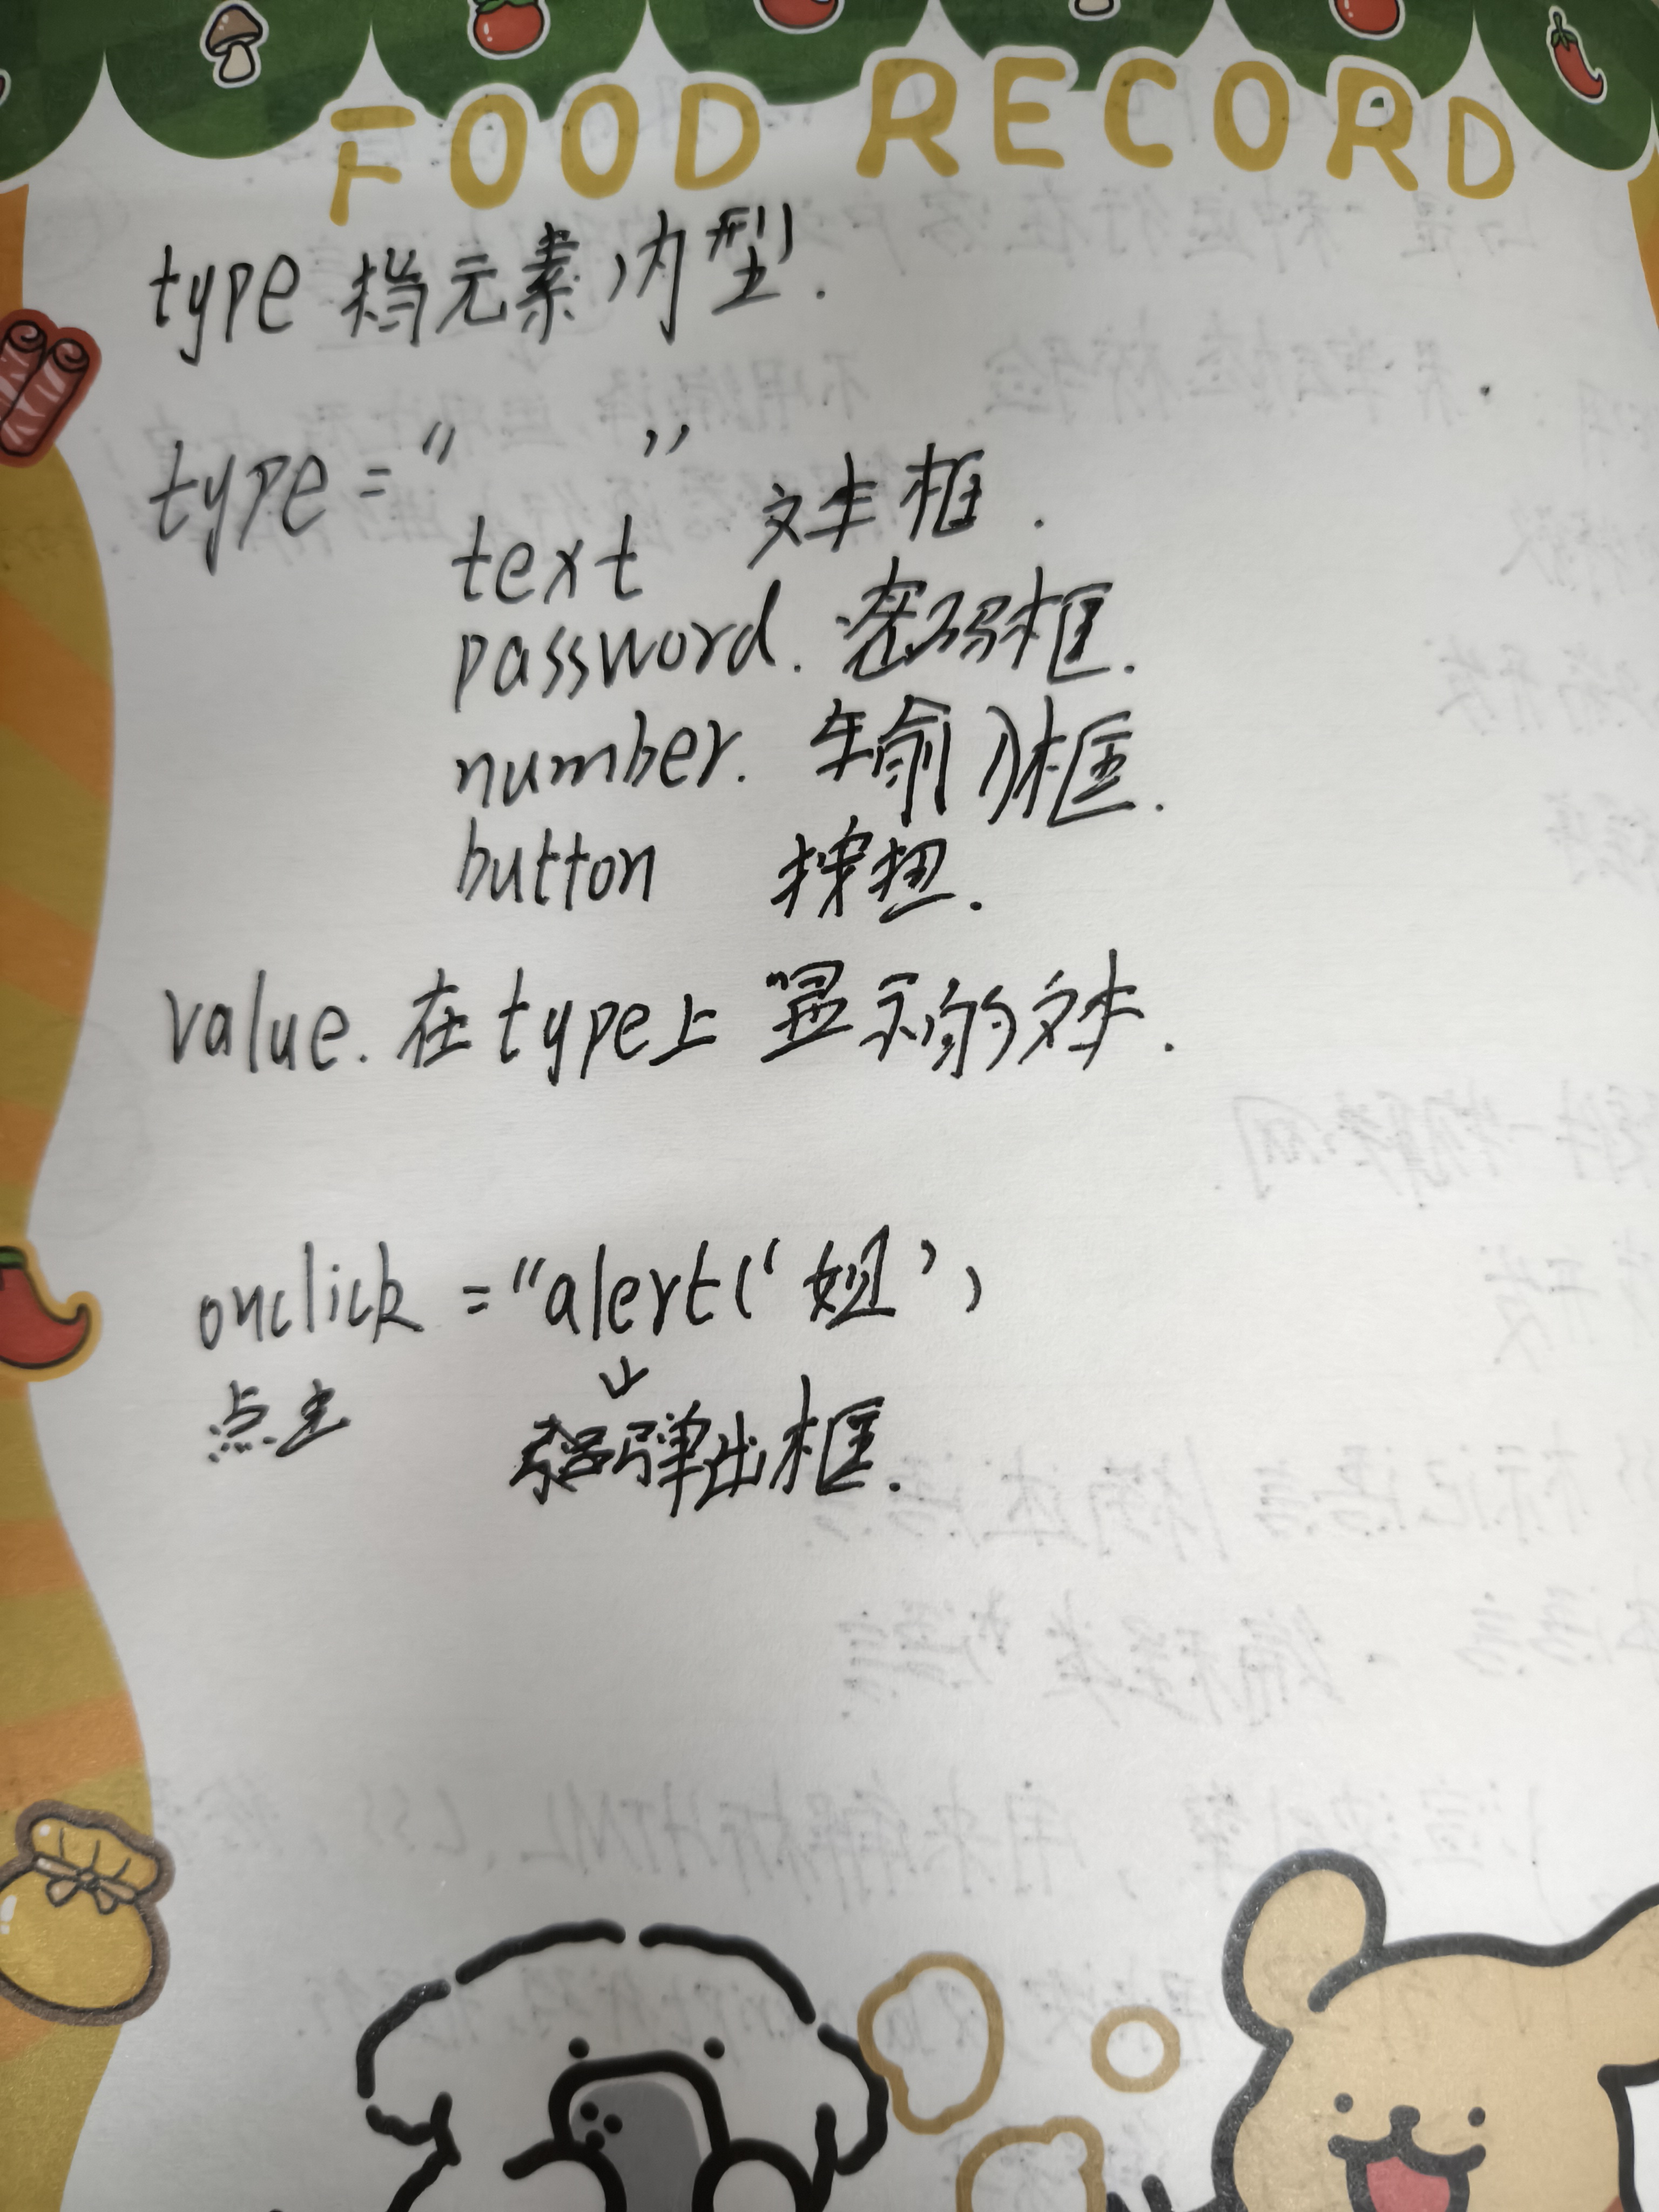 FOOD RECORD
type 档元素内型.
type = " "
text 文本框.
password. 密码框.
number. 车俞入框.
button 按扭.
value. 在type上显示的文本.
onclick = "alert('妞')
点击
弹出框.